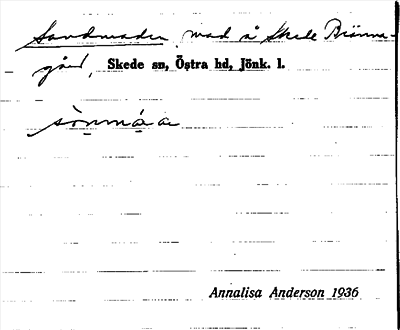 Sandmaden mad å Skede Bränna-
gård, Skede sn, Östra hd, Jönk. l.
Annalisa Anderson 1936